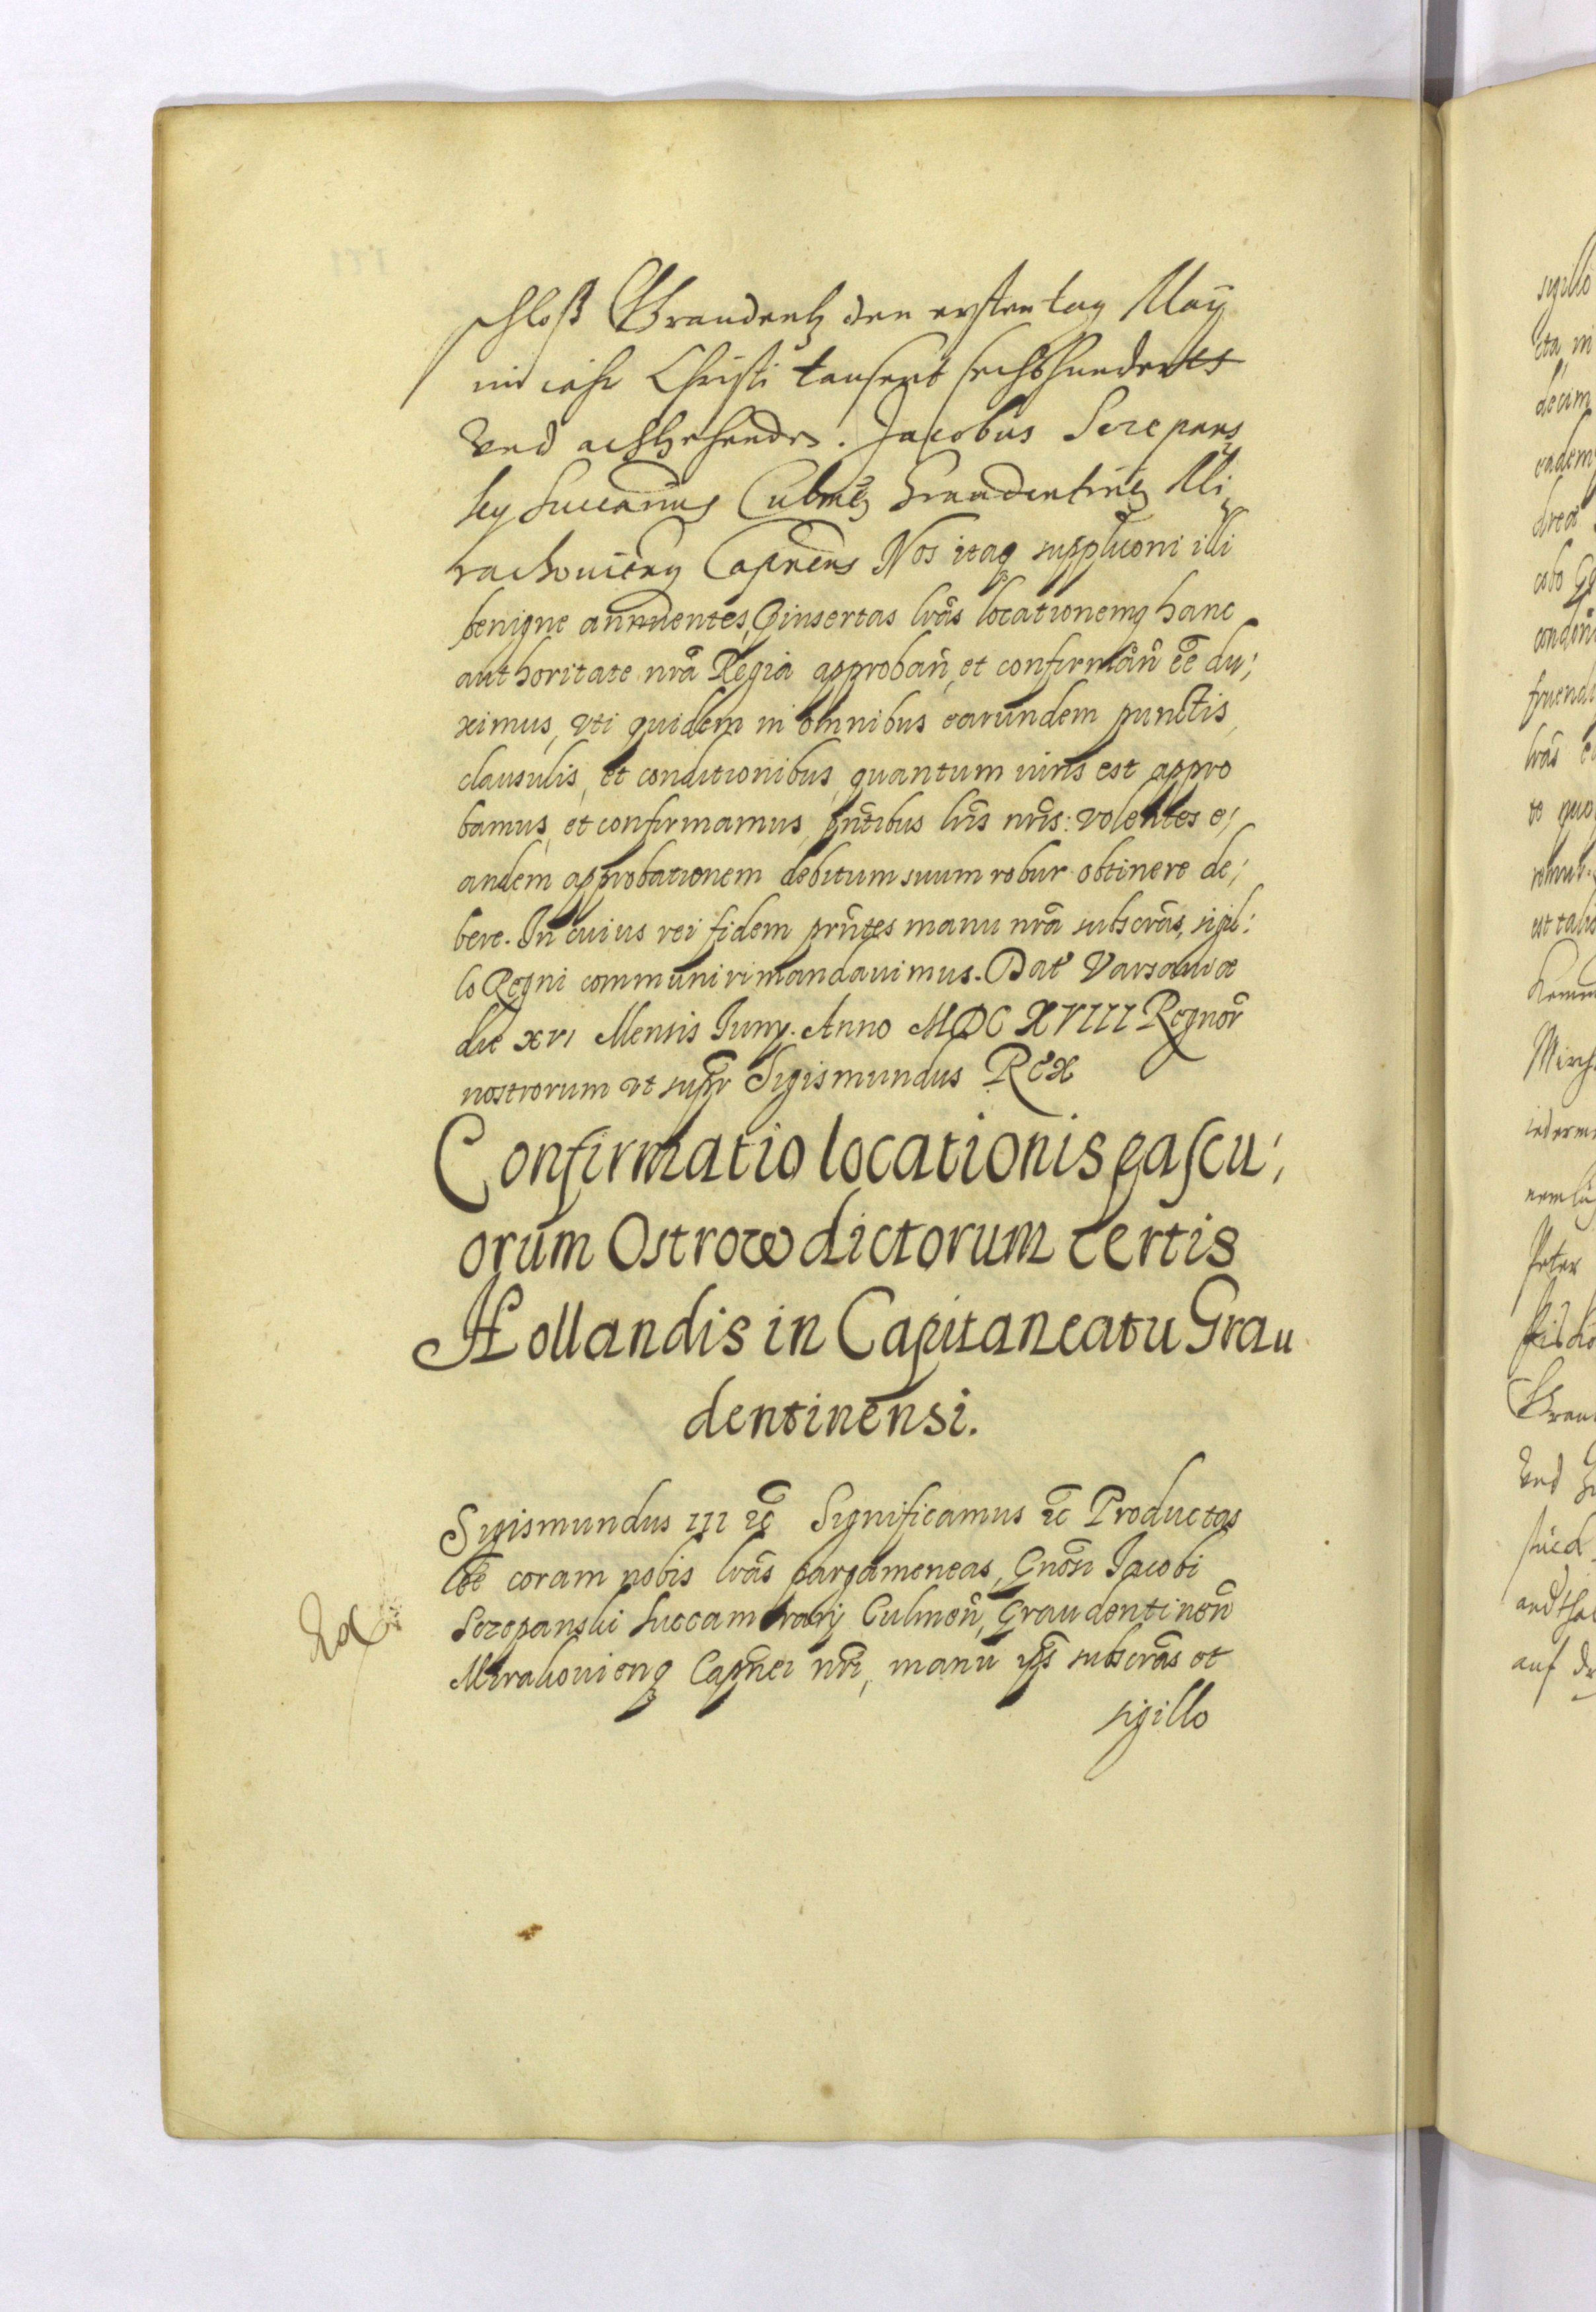 schloß Graudentz den ersten tag May
im iahr Christi tausent sechshunderts
Und achtzehende. Jacobus Sczepans
ky Succarius Culmeñ Graudentineñ Mi
rachovieñq Capneus Nos itaq suppliconi illi
benigne annuentes, pinsertas lrãs locationemq hanc
authoritate nrã Regia approbañ, et confirmañ eẽ du;
ximus, vti quidem in omnibus earundem punctis,
clausulis, et conditionibus, quantum iuris est appro
bamus, et confirmamus, pñtibus lris nris: volentes e;
andem approbationem debitum suum robur obtinere de;
bere. In cuius rei fidem prñtes manu nrã subscrãs, sigil:
lo Regni communiri mandauimus. Dat Varsauiæ
die XVI Mensis Iuny. Anno MDCXVIII Regnor
nostrorum vt supr Sigismundus Rex
Confirmatio locationis pascu;
orum Ostrow dictorum certis
Hollandis in Capitaneatu Grau
dentinensi.
Sigismundus III ec Significamus ec Productas
eẽ coram nobis lrãs pargameneas, Gnõsi Jacobi
Sczepanski Succamerarij Culmeñ, Graudentineñ
Mirahouienq Capnei nri, manu ips subscrãs et
sigillo